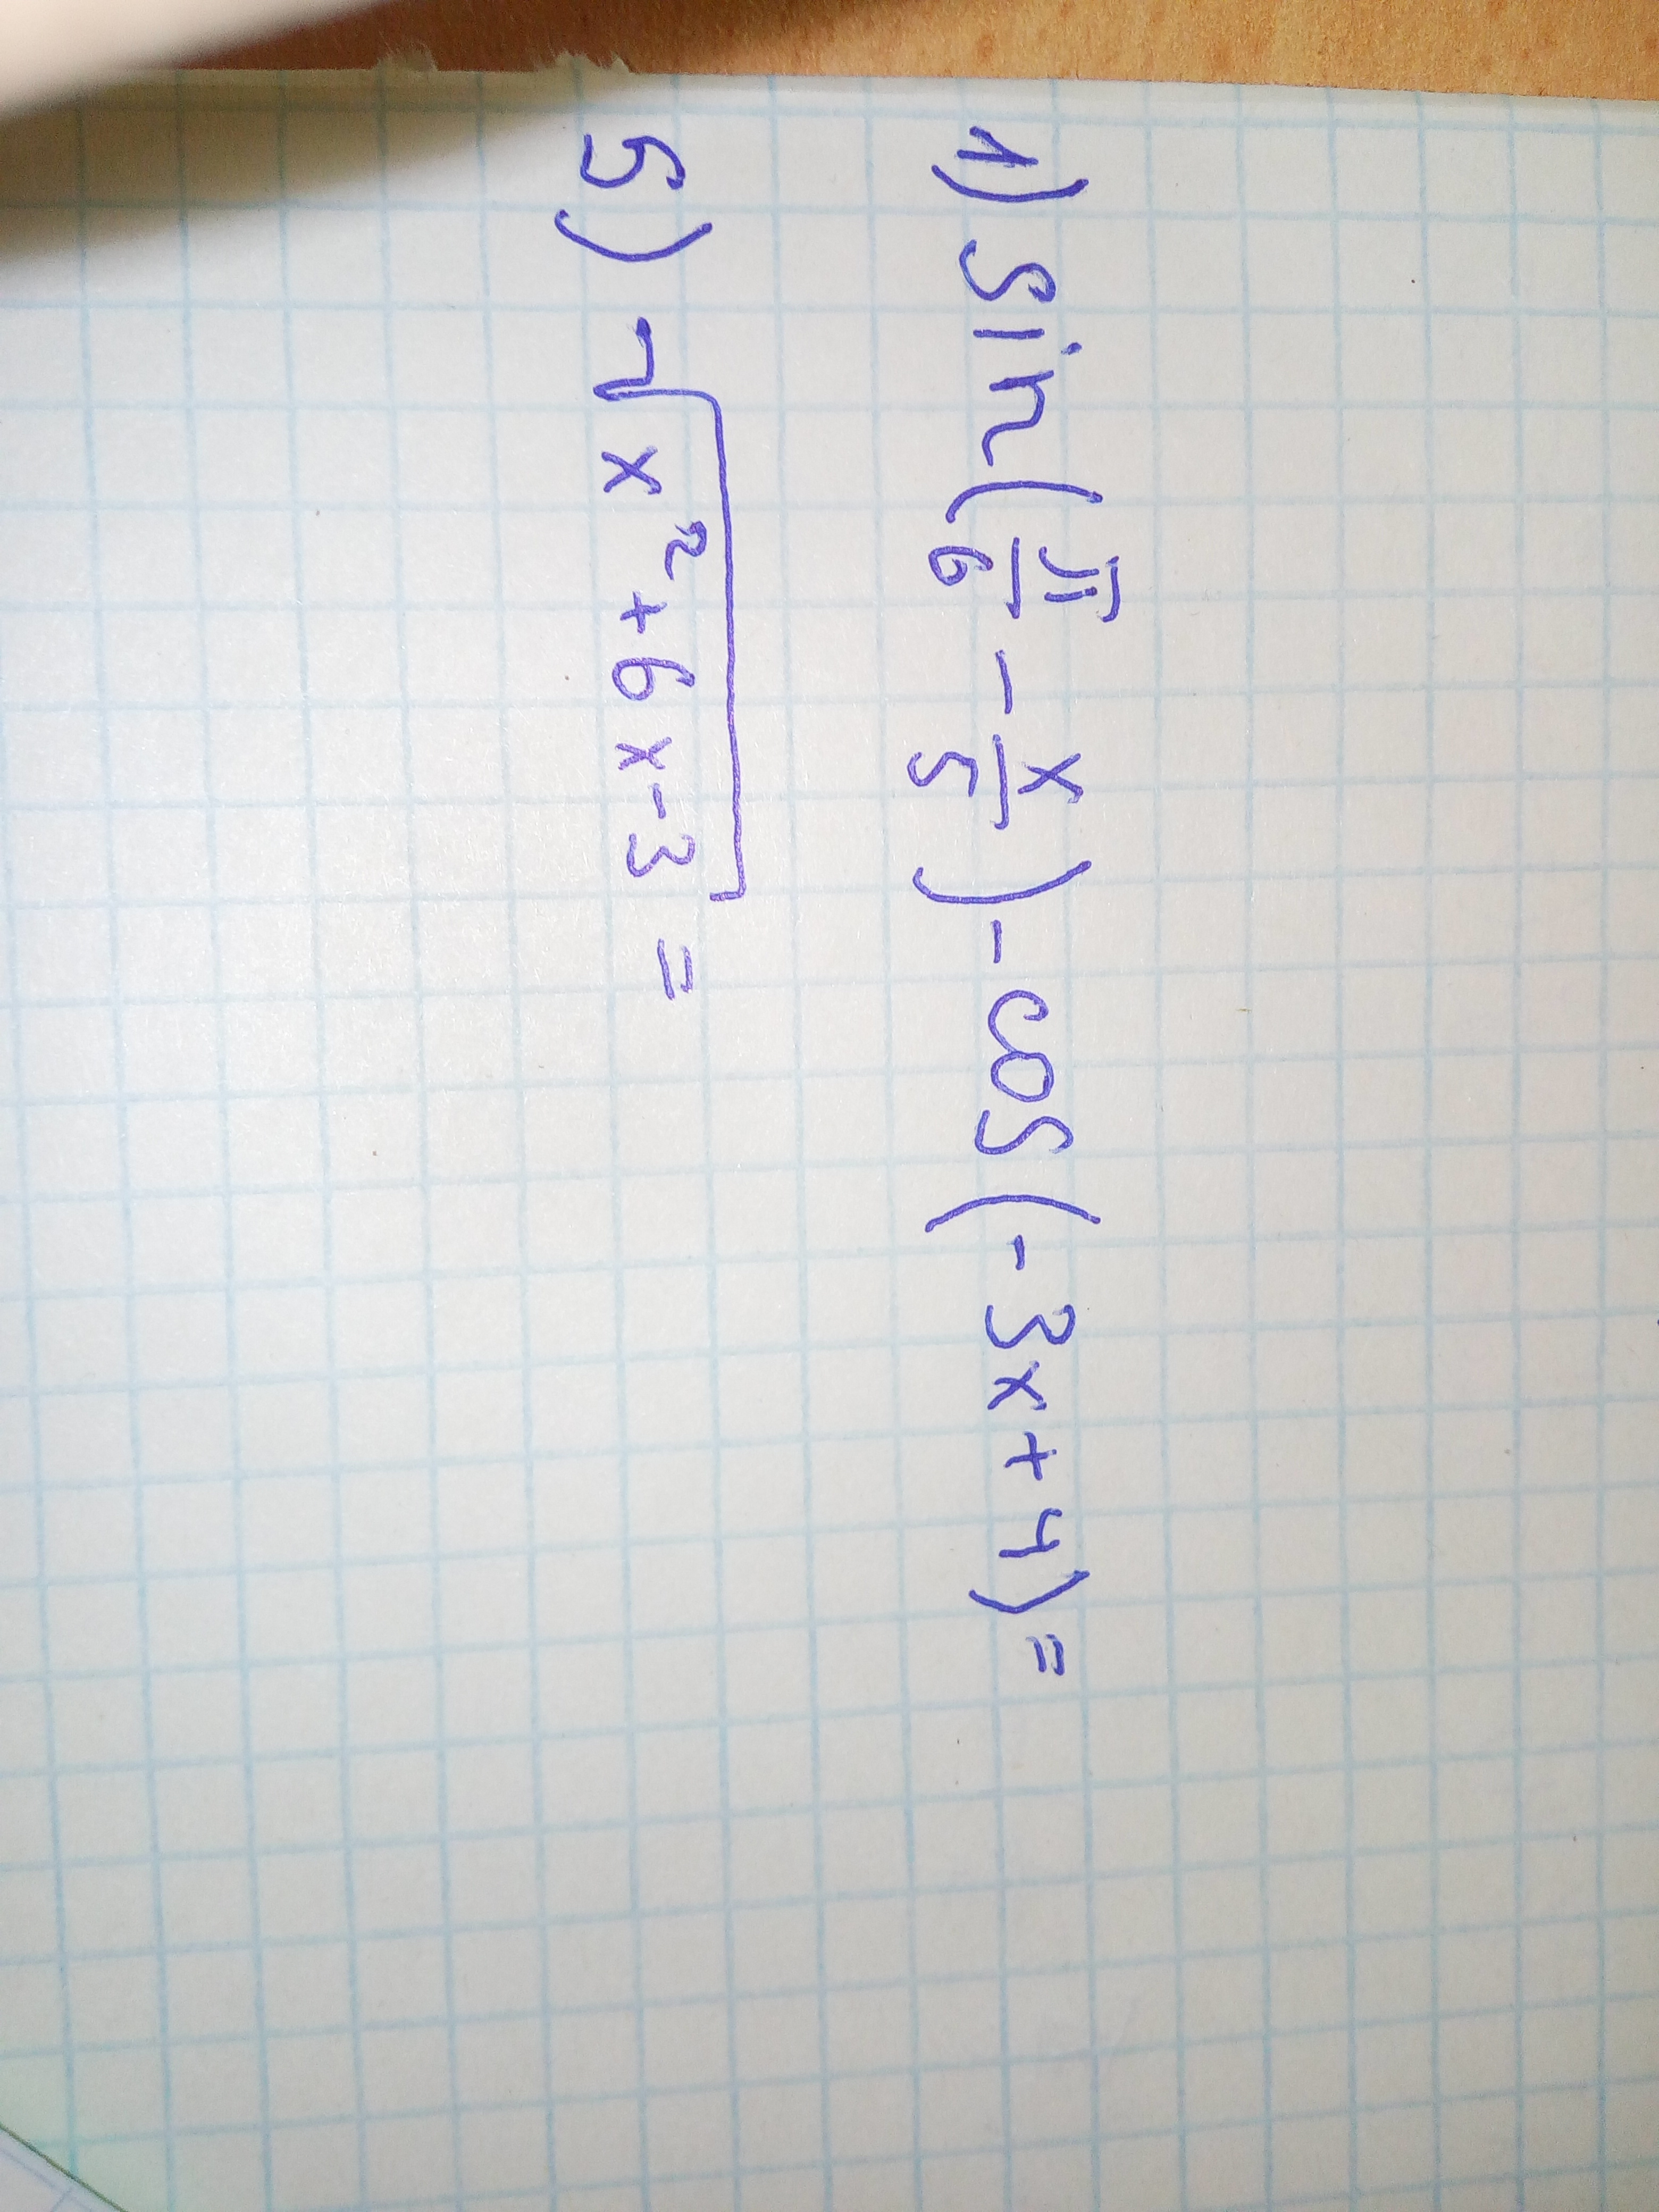 1) sin(π/6 - x/5) - cos(-3x+4) =
5) √x²+6x-3 =